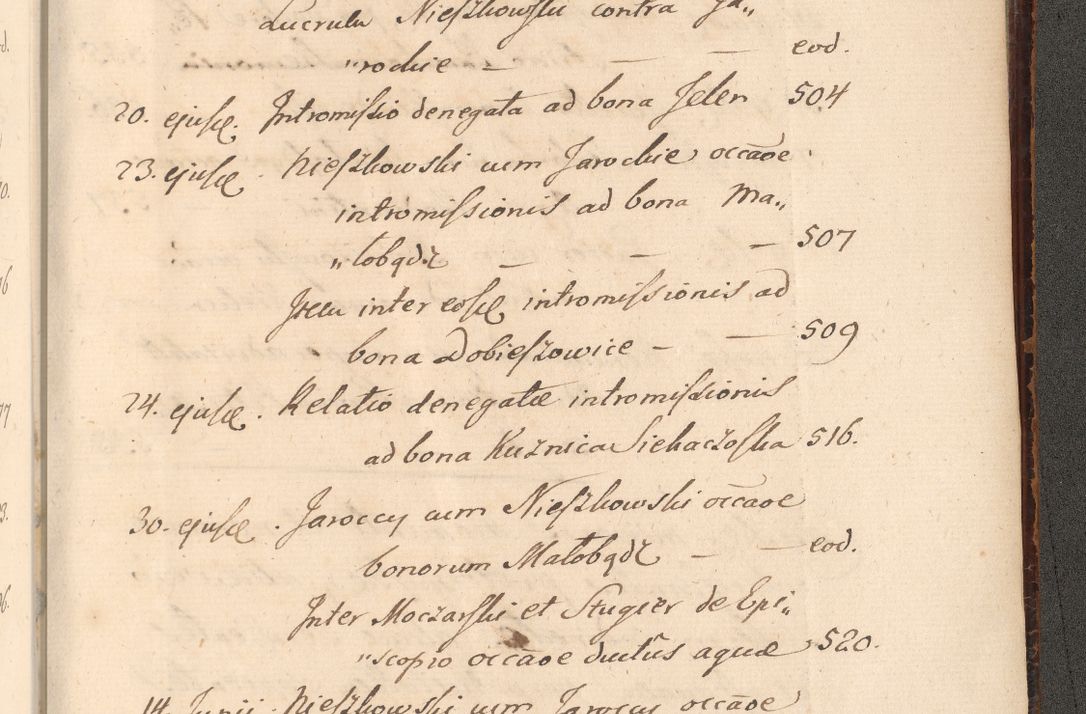 Nieſzkowſki contra Ja„
„rockie — — — eod.
20. ejuſd. Intromiſsio denegata ad bona Jelen 504
23. ejuſd. Nieſzkowski cum Jarockie occãoe
intromiſsionis ad bona Ma„
„tobądz — — — 507
Item inter eoſd. intromiſsionis ad
bona Dobieſzowice — — 509
24. ejuſd. Relatio denegatæ intromiſsionis
ad bona Kuznica Siekaczoſka 516.
30. ejuſd. Jaroccy cum Nieſzkowski occãoe
bonorum Małobądz — — eod.
Inter Moczarſki et Stugier de Epi„
„scopio occãoe ductûs aquæ 520.
14. Junii. Nieſzkowski cum Jaroccy occãoe